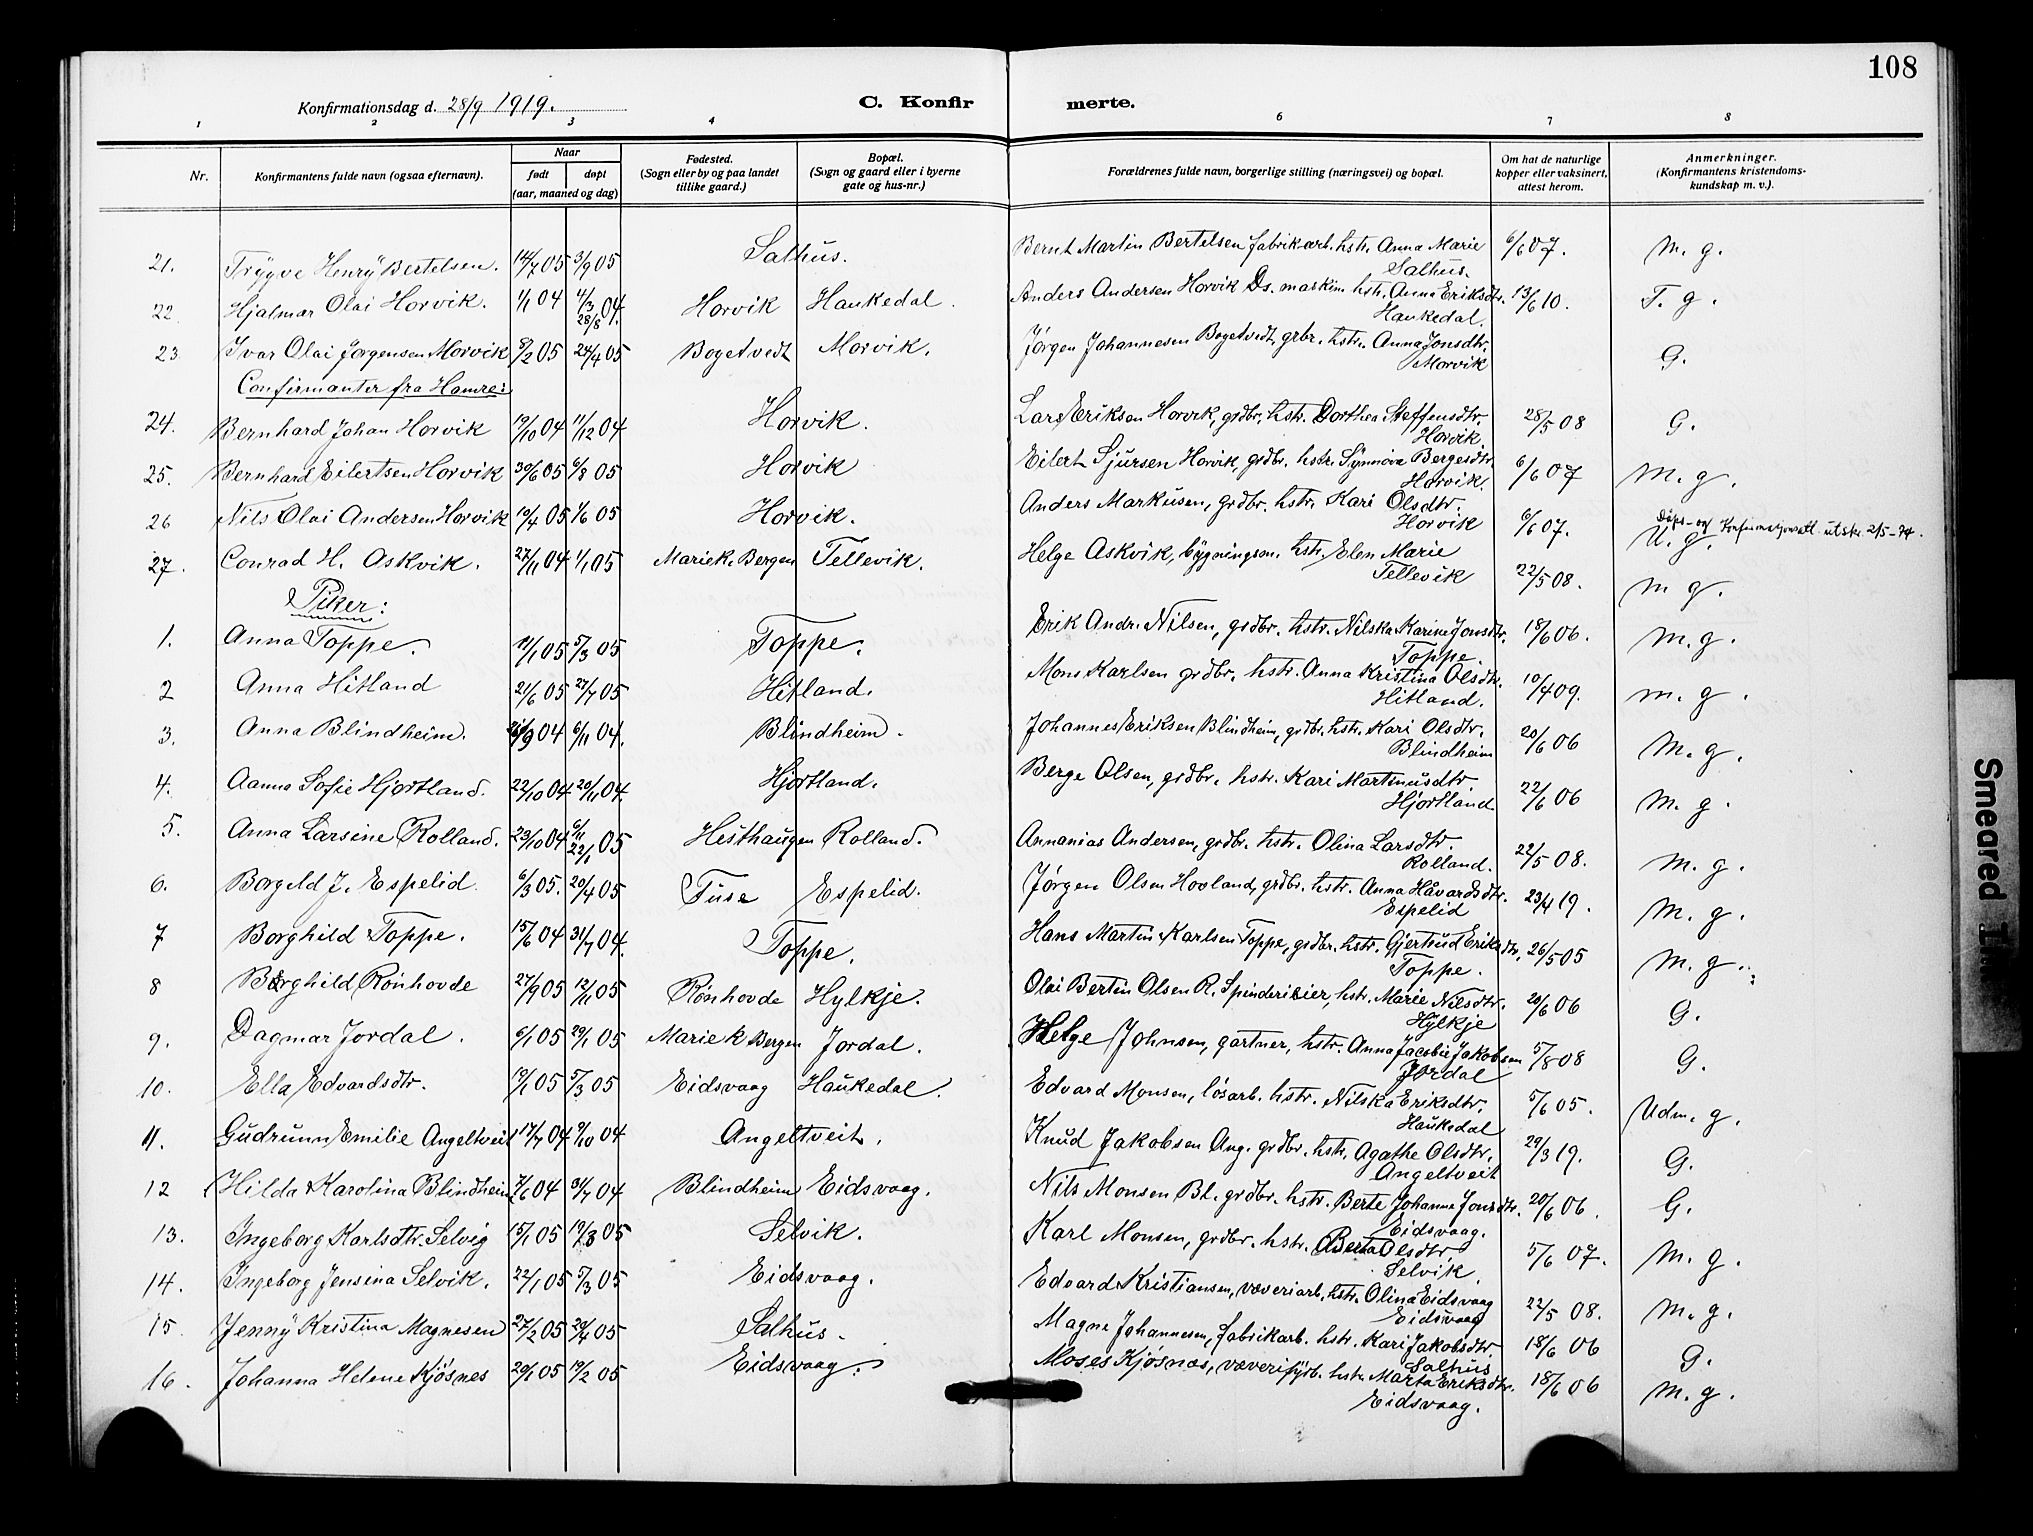 108
Konfirmationsdag d. 28/9 1919. C. Konfirmerte.
1 2 3 4 6 7 8
Nr. Konfirmantens fulde navn (ogsaa efternavn). Naar født døpt (aar, maaned og dag) Fødested. (Sogn eller by og paa landet tillike gaard.) Bopæl. (Sogn og gaard eller i byerne gate og hus-nr.) Forældrenes fulde navn, borgerlige stilling (næringsvei) og bopæl. Om hat de naturlige kopper eller vaksinert, attest herom. Anmerkninger. (Konfirmantens kristendoms-kundskap m. v.).
21. Trygve Henry Bertelsen. 14/7 05 3/9 05 Salhus. Bernt Martin Bertelsen fabrikarb. hstr. Anna Marie Salhus. 6/6 07. M. g.
22 Hjalmar Olai Horvik. 1/1 04 4/3 28/8 04. Horvik Haukedal. Anders Andersen Horvik Ds. maskim hstr. Anna Eriksdtr. Haukedal. 13/6 10. T. g.
23 Ivar Olai Jørgensen Morvik 8/2 05 24/4 05 Bogetvedt Morvik. Jørgen Johannesen Bogetvedt, grbr. hstr. Anna Jonsdtr. Morvik G.
Confirmanter fra Hamre:
24. Bernhard Johan Horvik 19/10 04 11/12 04 Horvik. Lars Eriksen Horvik, grdbr, hstr. Dorthea Steffensdtr. Horvik 28/5 08 G.
25. Bernhard Eilertsen Horvik 30/6 05 6/8 05 Horvik Eilert Sjursen Horvik, grdbr. hstr. Synnøva Bergesdtr. Horvik. 6/6 07 M. g.
26 Nils Olai Andersen Horvik 10/4 05 1/6 05 Horvik. Anders Markusen, grdbr. hstr. Kari Olsdtr. Horvik 6/6 07. U. g. Døps- og Konfirmasjonsatt. utskr. 2/5-74.
27. Conrad H. Askvik. 27/11 04 1/1 05 Mariek. Bergen Tellevik. Helge Askvik, bygningsm. hstr. Elen Marie Tellevik 22/5 08. M g.
Piker:
1. Anna Toppe. 11/1 05 5/3 05 Toppe. Erik Andr. Nilsen, grdbr. hstr. Nilska Karine Jonsdtr. Toppe 18/6 06. M. g.
2 Anna Hitland 21/6 05 27/7 05 Hitland. Mons Karlsen grdbr. hstr. Anna Kristina Olsdtr. Hitland. 10/4 09. M. g.
3. Anna Blindheim. 26/9 04 6/11 04. Blindheim. Johannes Eriksen Blindheim, grdbr. hstr. Kari Olsdtr. Blindheim 20/6 06 M. g.
4. Aanna Sofie Hjortland. 22/10 04 20/11 04. Hjortland. Berge Olsen, grdbr. hstr. Kari Martinusdtr. Hjortland 22/6 06 M. g.
5. Anna Larsine Rolland. 23/10 04 6/11 22/1 05 Hesthaugen Rolland. Annanias Andersen, grdbr. hstr. Olina Larsdtr. Rolland. 22/5 08. M. g.
6. Borgeld J. Espelid. 6/3 05. 20/4 05 Tuse Espelid. Jørgen Olsen Hovland, grdbr. hstr. Anna Håvardsdtr. Espelid 23/4 19. M. g.
7 Borghild Toppe. 15/6 04 31/7 04. Toppe. Hans Martin Karlsen Toppe, grdbr. hstr. Gjertrud Eriksdtr. Toppe. 26/5 05 M. g.
8 Borghild Rønhovde 27/9 05 12/11 05 Rønhovde Hylkje. Olai Bertin Olsen R. Spinderibier, hstr. Marie Nilsdtr. Hylkje 20/6 06 G.
9. Dagmar Jordal. 6/1 05 29/1 05 Marie k Bergen Jordal. Helge Johnsen, gartner, hstr. Anna Jacobie Jakobsen Jordal 5/8 08 G.
10. Ella Edvardsdtr. 19/1 05 5/3 05 Eidsvaag Haukedal. Edvard Monsen, løsarb. hstr. Nilska Eriksdtr. Haukedal 5/6 05. Udm. g.
11. Gudrunn Emilie Angeltveit 17/7 04 9/10 04 Angeltveit. Knud Jakobsen Ang. grdbr. hstr. Agathe Olsdtr. Angeltveit 29/3 19. G.
12 Hilda Karolina Blindheim 7/6 04 31/7 04 Blindheim Eidsvaag. Nils Monsen Bl. grdbr. hstr. Berte Johanna Jonsdtr. Eidsvaag. 20/6 06. G.
13. Ingeborg Karlsdtr. Selvig 15/1 05 19/3 05 Selvik. Karl Monsen, grdbr. hstr. Berta Olsdtr Selvik. 5/6 07. M. g.
14. Ingeborg Jensina Selvik. 22/1 05 5/3 05 Eidsvaag. Edvard Kristiansen, væveriarb. hstr. Olina Eidsvaag Eidsvaag 22/5 08. M. g.
15. Jenny Kristina Magnesen 27/2 05 20/4 05 Salhus. Magne Johannesen, fabrikarb. hstr. Kari Jakobsdtr. Salhus 18/6 06 G.
16. Johanna Helene Kjøsnes 20/1 05 19/2 05 Eidsvaag. Moses Kjøsnæs, væverifyrb. hstr. Marta Eriksdtr. Eidsvaag. 18/6 06 M. g.
Smeared